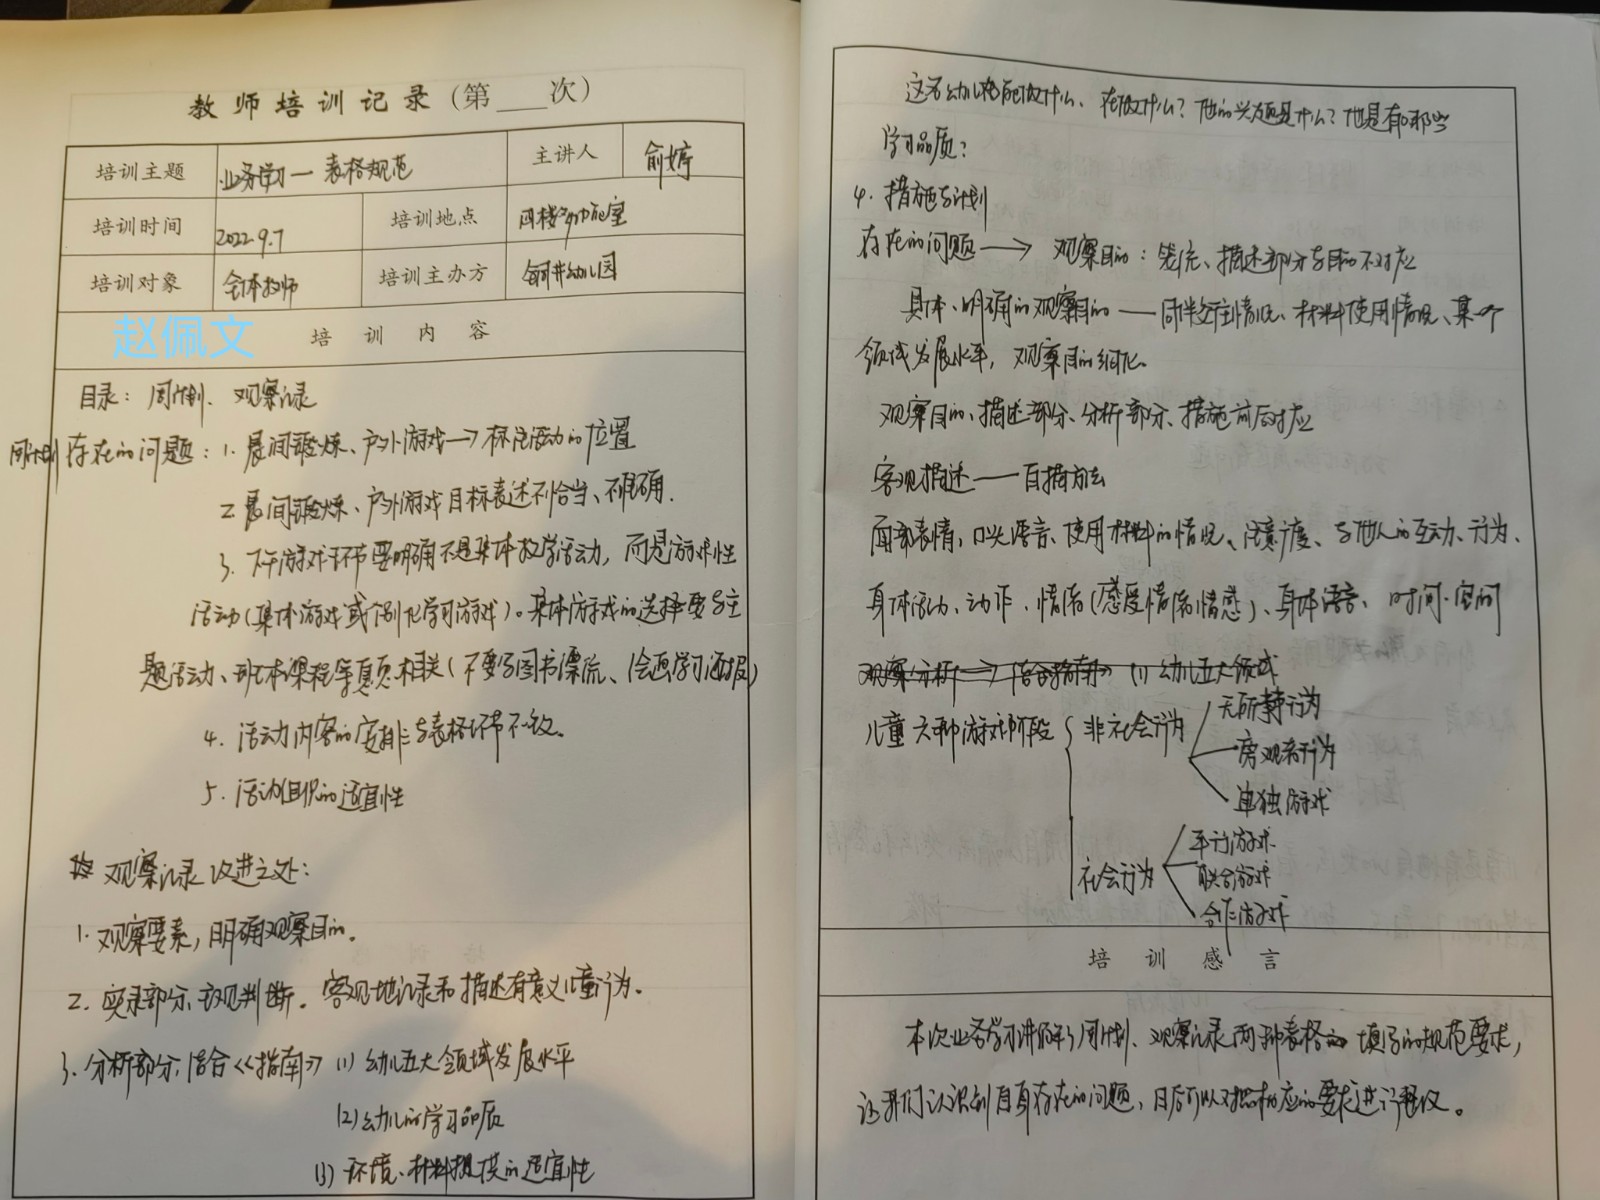 教师培训记录（第___次）
培训主题 业务学习一 表格规范 主讲人 俞婷
培训时间 2022.9.7 培训地点 四楼多功能室
培训对象 全体教师 培训主办方 铜井幼儿园
赵佩文
培训内容
目录：周计划、观察记录
周计划存在的问题：1. 晨间锻炼、户外游戏→标注活动的位置
2. 晨间锻炼、户外游戏目标表述不恰当、不明确.
3. 下午游戏环节要明确不是集体教学活动，而是游戏性
活动（集体游戏或个别化学习游戏）。集体游戏的选择要与主
题活动、班本课程等真实相关（不要写图书漂流、绘画学习活动）
4. 活动内容的安排与表格环节不一致。
5. 活动组织的适宜性
观察记录 改进之处：
1. 观察要素，明确观察目的。
2. 实录部分，主观判断。客观地记录和描述有意义儿童行为。
3. 分析部分，结合《指南》 (1) 幼儿五大领域发展水平
(2) 幼儿的学习品质
(3) 环境、材料提供的适宜性
这名幼儿能做什么、在做什么？他的兴趣是什么？他是有哪些
学习品质？
4. 措施与计划
存在的问题→观察目的：笼统、描述部分与目的不对应
具体、明确的观察目的——同伴交往情况、材料使用情况、某一个
领域发展水平，观察目的细化。
观察目的、描述部分、分析部分、措施前后对应
客观描述——白描方法
面部表情，口头语言、使用材料的情况、注意广度、与他人的互动、行为、
身体活动、动作、情绪（感受情绪情感）、身体语言、时间·空间
观察分析→结合《指南》(1) 幼儿五大领域
儿童六种游戏阶段 非社会行为 无所事事行为
旁观者行为
单独游戏
社会行为 平行游戏
联合游戏
合作游戏
培训感言
本次业务学习讲解了周计划、观察记录两种表格的填写的规范要求，
让我们认识到自身存在的问题，日后可以对照相应的要求进行整改。